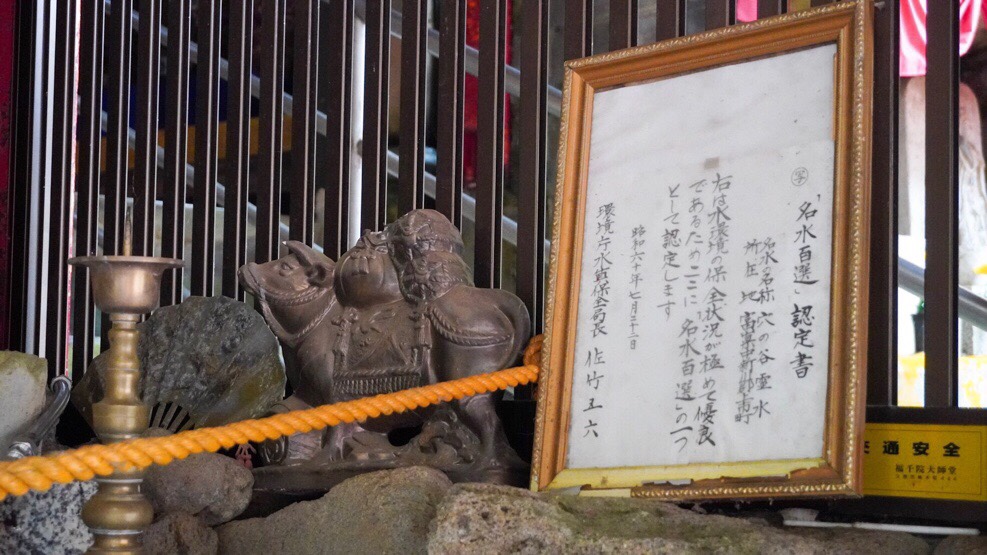 ㊢
「名水百選」認定書
名水の名称 穴の谷霊水
所在地 富山県中新川郡上市町
右は水環境の保全状況が極めて優良
であるためここに「名水百選」の一つ
として認定します
昭和六十年七月二十二日
環境庁水質保全局長 佐竹五六
交通安全
福千院大師堂